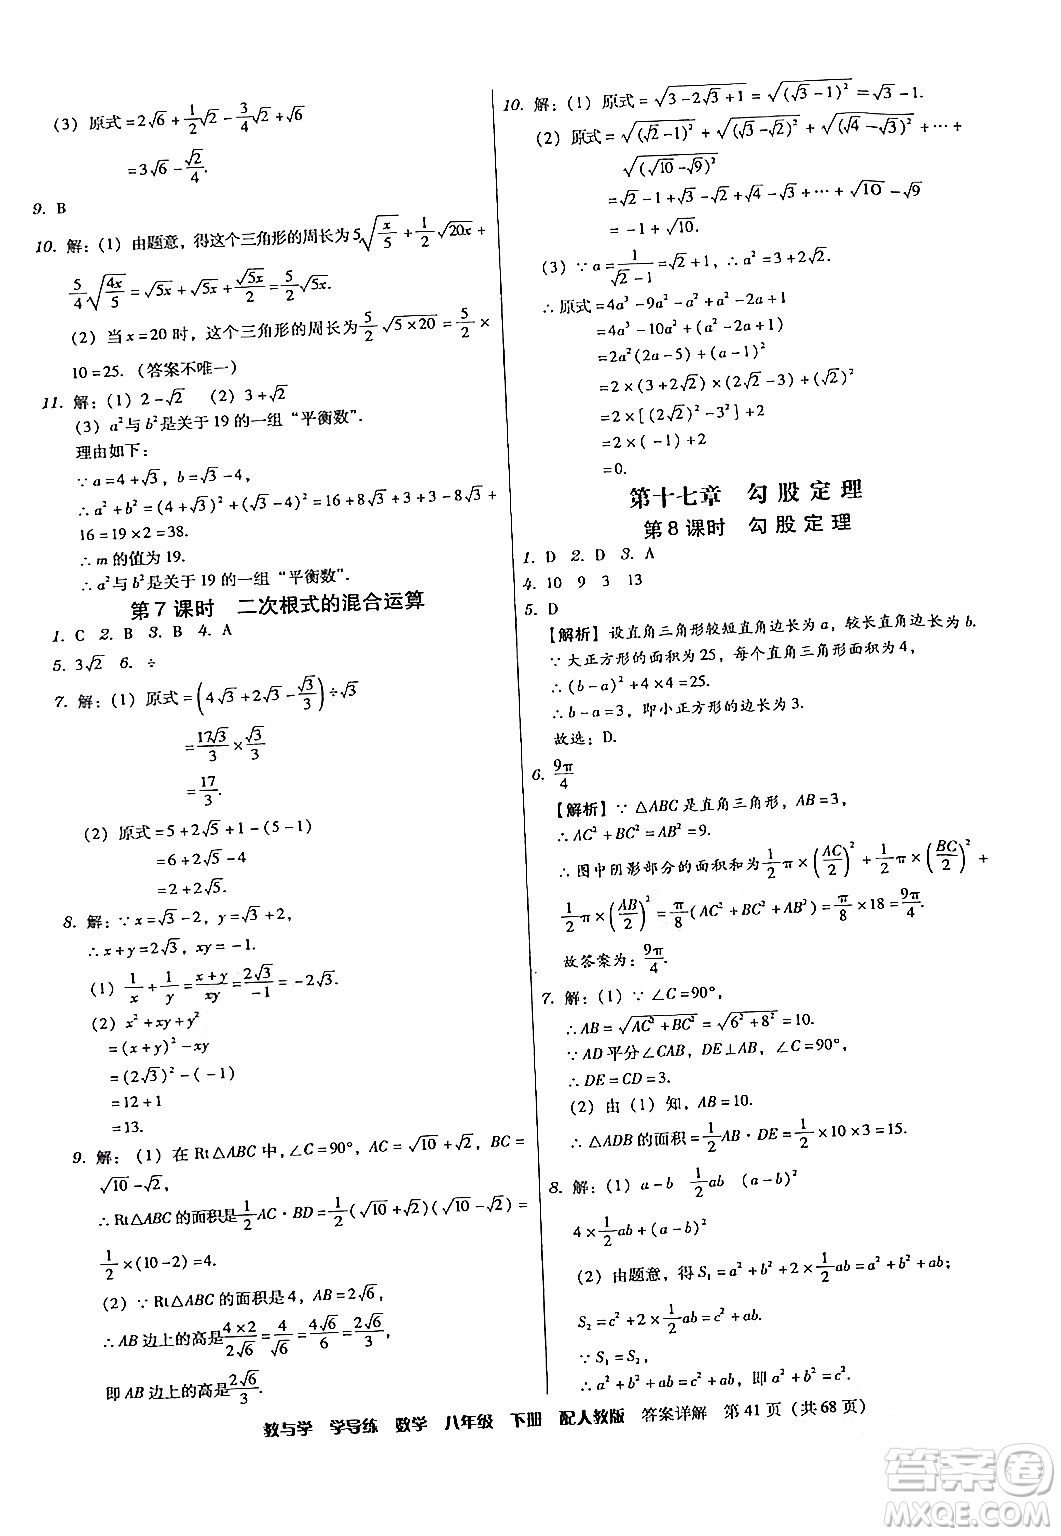 (3) 原式=2√6+1/2√2-3/4√2+√6
=3√6-√2/4.
9. B
10. 解：(1) 由题意，得这个三角形的周长为5√(x/5)+1/2√(20x)+
5/4√(4x/5)=√(5x)+√(5x)+√(5x)/2=5/2√(5x).
(2) 当x=20时，这个三角形的周长为5/2√(5×20)=5/2×
10=25.（答案不唯一）
11. 解：(1) 2-√2 (2) 3+√2
(3) a²与b²是关于19的一组“平衡数”.
理由如下：
∵a=4+√3, b=√3-4,
∴a²+b²=(4+√3)²+(√3-4)²=16+8√3+3+3-8√3+
16=19×2=38.
∴m的值为19.
∴a²与b²是关于19的一组“平衡数”.
第7课时 二次根式的混合运算
1. C 2. B 3. B 4. A
5. 3√2 6. ÷
7. 解：(1) 原式=(4√3+2√3-√3/3)÷√3
=17√3/3×√3/3
=17/3.
(2) 原式=5+2√5+1-(5-1)
=6+2√5-4
=2+2√5.
8. 解：∵x=√3-2, y=√3+2,
∴x+y=2√3, xy=-1.
(1) 1/x+1/y=(x+y)/xy=2√3/-1=-2√3.
(2) x²+xy+y²
=(x+y)²-xy
=(2√3)²-(-1)
=12+1
=13.
9. 解：(1) 在Rt△ABC中，∠C=90°, AC=√10+√2, BC=
√10-√2,
∴Rt△ABC的面积是1/2AC·BD=1/2(√10+√2)(√10-√2)=
1/2×(10-2)=4.
(2) ∵Rt△ABC的面积是4, AB=2√6,
∴AB边上的高是4×2/2√6=4/√6=4√6/6=2√6/3,
即AB边上的高是2√6/3.
10. 解：(1) 原式=√(3-2√3+1)=√((√3-1)²)=√3-1.
(2) 原式=√((√2-1)²)+√((√3-√2)²)+√((√4-√3)²)+…+
√((√10-√9)²)
=√2-1+√3-√2+√4-√3+…+√10-√9
=-1+√10.
(3) ∵a=1/(√2-1)=√2+1, ∴a²=3+2√2.
∴原式=4a³-9a²-2a+1
=4a³-10a²+(a²-2a+1)
=2a²(2a-5)+(a-1)²
=2×(3+2√2)×(2√2-3)+2
=2×[(2√2)²-3²]+2
=2×(-1)+2
=0.
第十七章 勾股定理
第8课时 勾股定理
1. D 2. D 3. A
4. 10 9 3 13
5. D
【解析】设直角三角形较短直角边长为a，较长直角边长为b.
∵大正方形的面积为25，每个直角三角形面积为4,
∴(b-a)²+4×4=25.
∴b-a=3，即小正方形的边长为3.
故选：D.
6. 9π/4
【解析】∵△ABC是直角三角形，AB=3,
∴AC²+BC²=AB²=9.
∴图中阴影部分的面积和为1/2π×(AC/2)²+1/2π×(BC/2)²+
1/2π×(AB/2)²=π/8(AC²+BC²+AB²)=π/8×18=9π/4.
故答案为：9π/4.
7. 解：(1) ∵∠C=90°,
∴AB=√(AC²+BC²)=√(6²+8²)=10.
∵AD平分∠CAB, DE⊥AB, ∠C=90°,
∴DE=CD=3.
(2) 由（1）知，AB=10.
∴△ADB的面积=1/2AB·DE=1/2×10×3=15.
8. 解：(1) a-b 1/2ab (a-b)²
4×1/2ab+(a-b)²
(2) 由题意，得S₁=a²+b²+2×1/2ab=a²+b²+ab;
S₂=c²+2×1/2ab=c²+ab.
∵S₁=S₂,
∴a²+b²+ab=c²+ab，即a²+b²=c².
教与学 学导练 数学 八年级 下册 配人教版 答案详解 第41页（共68页）
答案圈
MXQE.COM